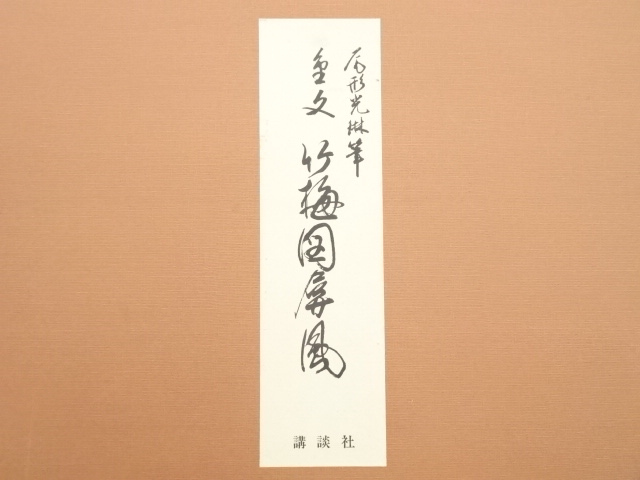 尾形光琳筆
重文 竹梅図屏風
講談社